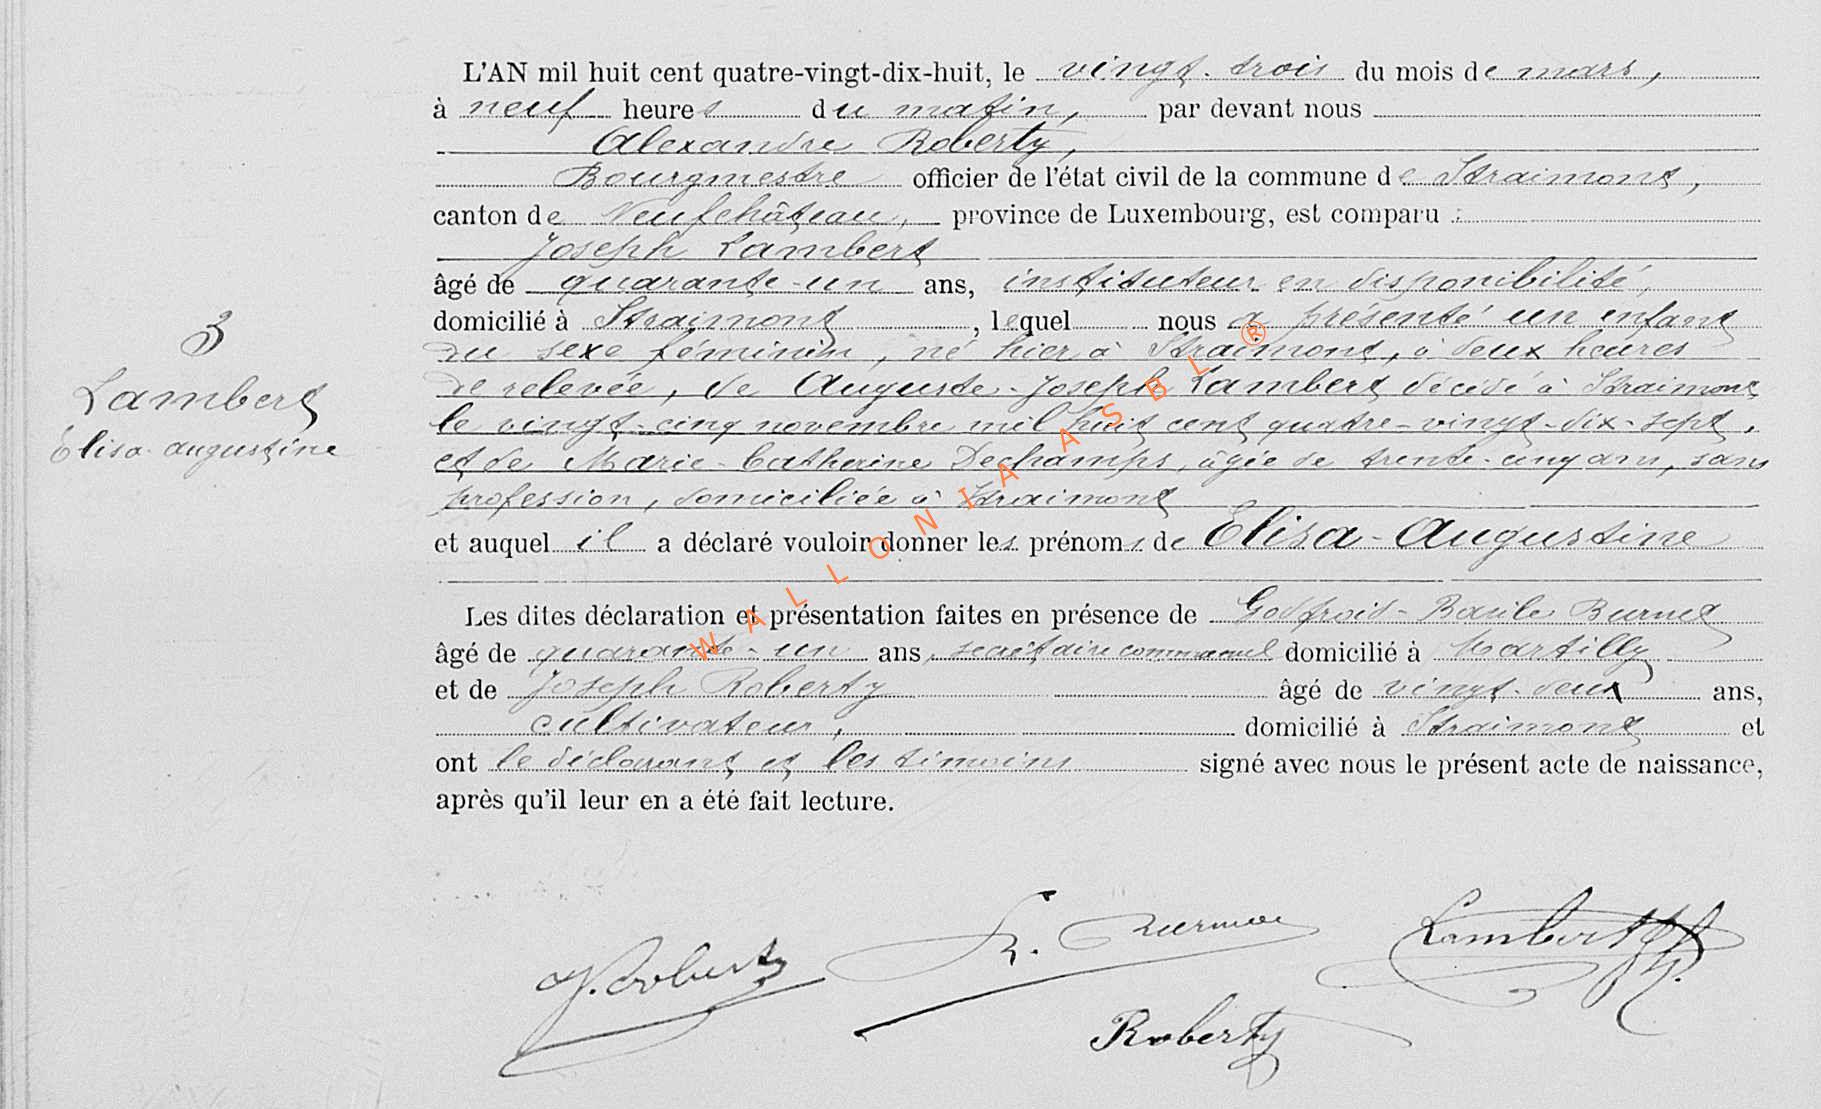 L'AN mil huit cent quatre-vingt-dix-huit, le vingt-trois du mois de mars,
à neuf heures du matin, par devant nous
Alexandre Roberty,
Bourgmestre officier de l'état civil de la commune de Straimont,
canton de Neufchâteau, province de Luxembourg, est comparu :
Joseph Lambert
âgé de quarante-un ans, instituteur en disponibilité,
domicilié à Straimont, lequel nous a présenté un enfant
3
du sexe féminin, né hier à Straimont, à deux heures
de relevée, de Auguste-Joseph Lambert décédé à Straimont
Lambert
le vingt-cinq novembre mil huit cent quatre-vingt-dix-sept,
Elisa-Augustine
et de Marie-Catherine Dechamps, âgée de trente-cinq ans, sans
profession, domiciliée à Straimont
et auquel il a déclaré vouloir donner les prénoms de Elisa-Augustine
Les dites déclaration et présentation faites en présence de Godfroid-Basile Burnet
âgé de quarante-un ans, secrétaire communal domicilié à Martilly
et de Joseph Roberty âgé de vingt-deux ans,
cultivateur, domicilié à Straimont et
ont le déclarant et les témoins signé avec nous le présent acte de naissance,
après qu'il leur en a été fait lecture.
WALLONIA ASBL ®
J. Roberty
Lambert
Roberty